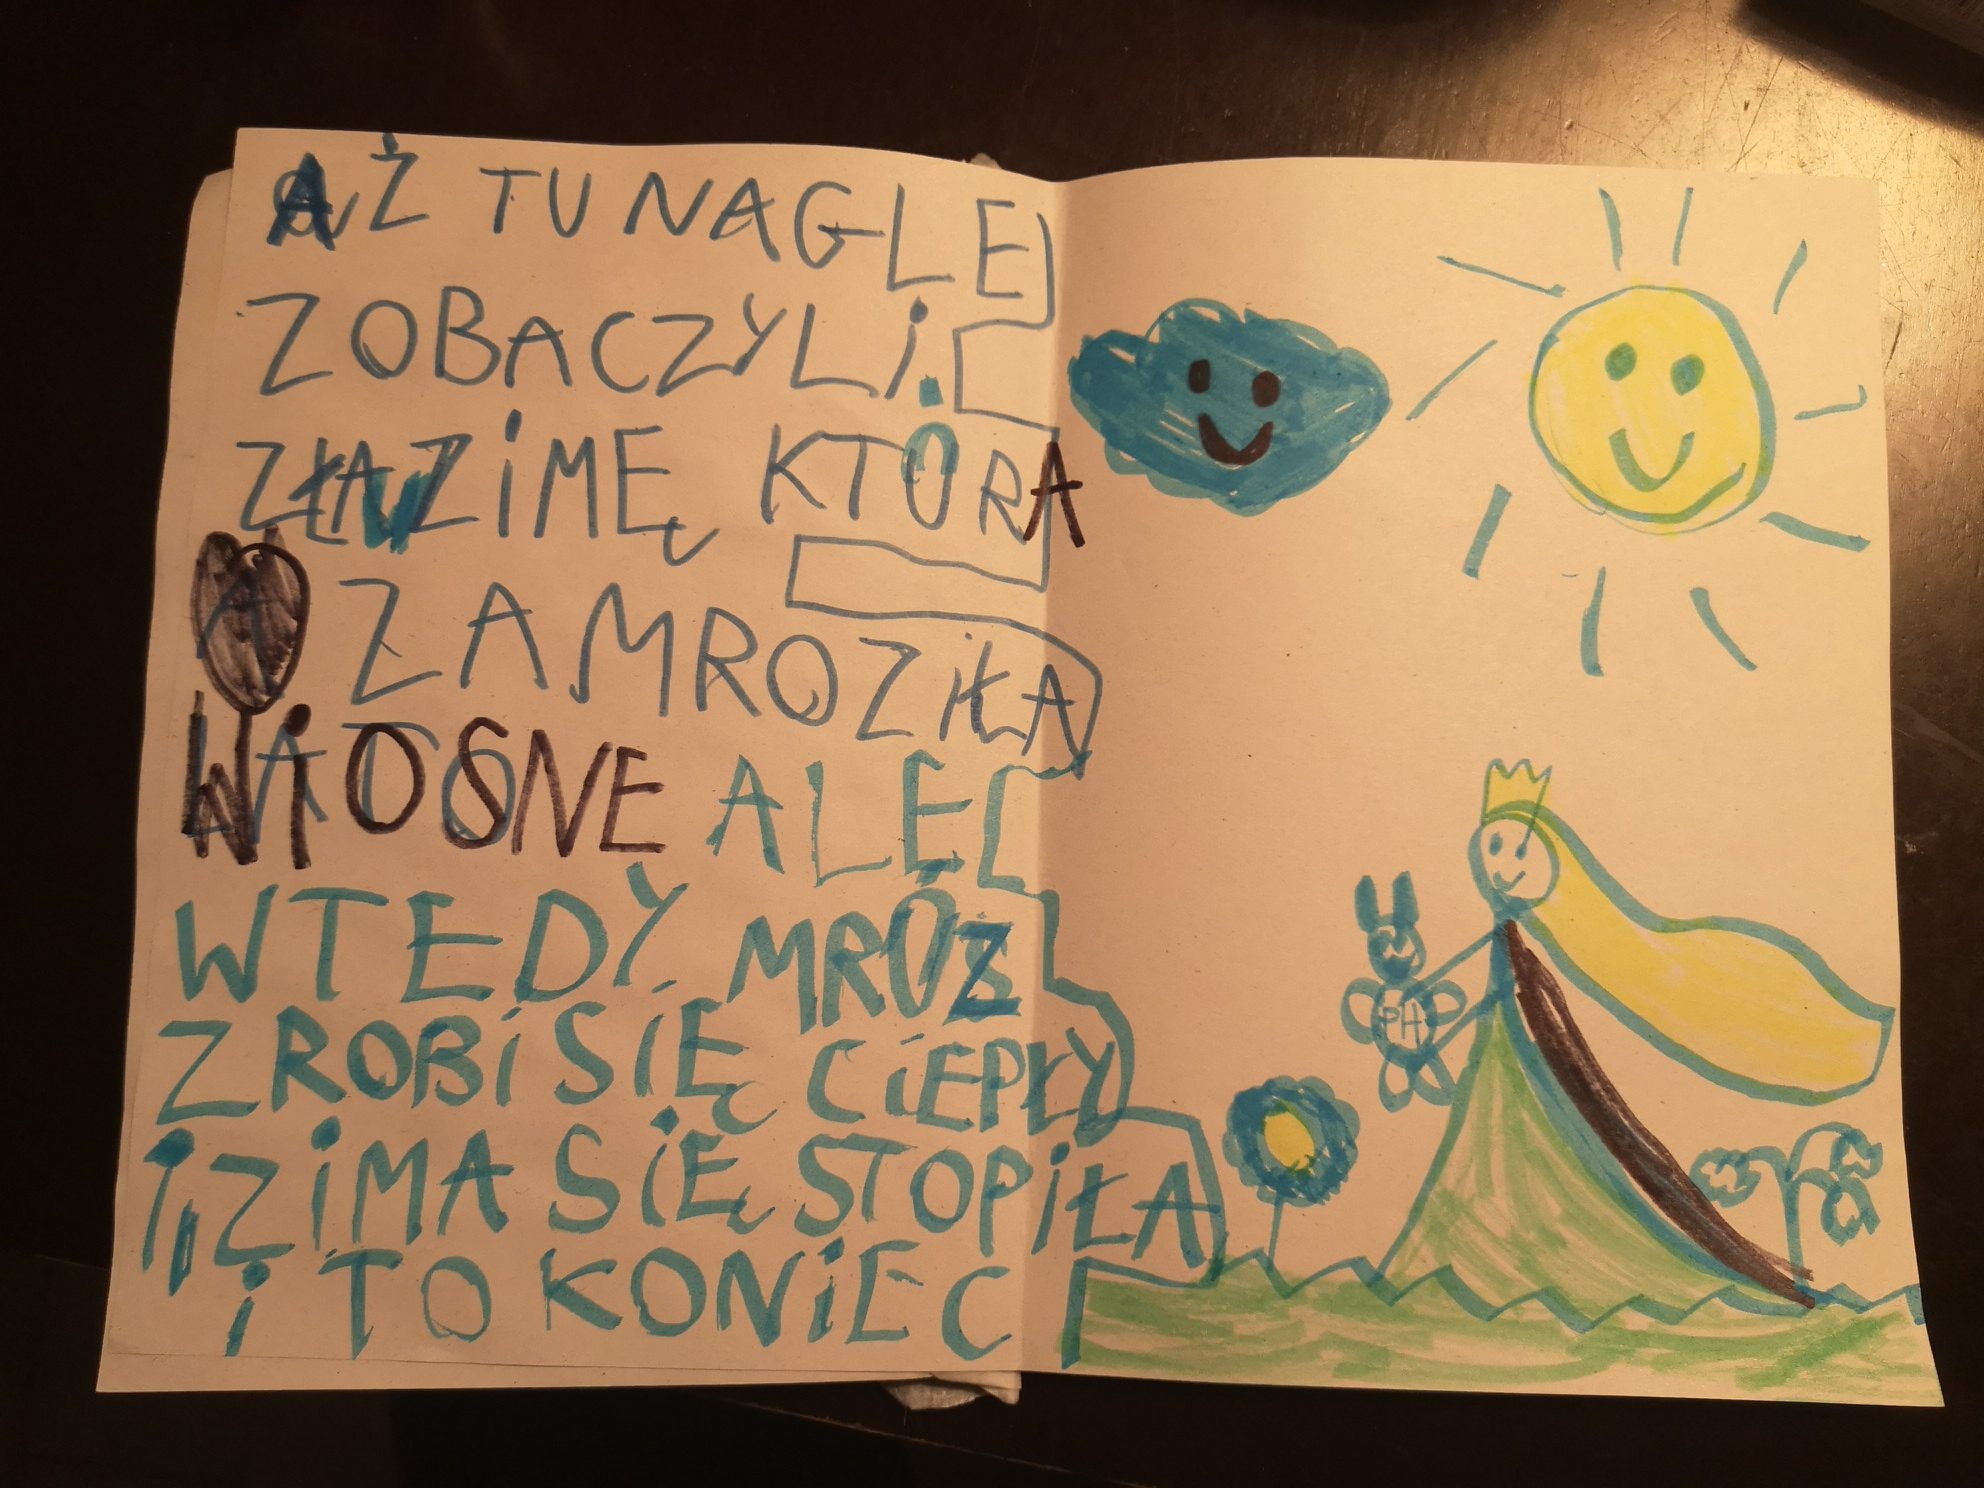 AŻ TU NAGLE
ZOBACZYLI.
ZŁĄ ZIMĘ KTÓRA
ZAMROZIŁA
WIOSNE ALE
WTEDY MRÓZ
ZROBI SIĘ CIEPŁY
I, ZIMA SIĘ STOPIŁA
i TO KONIEC
PH